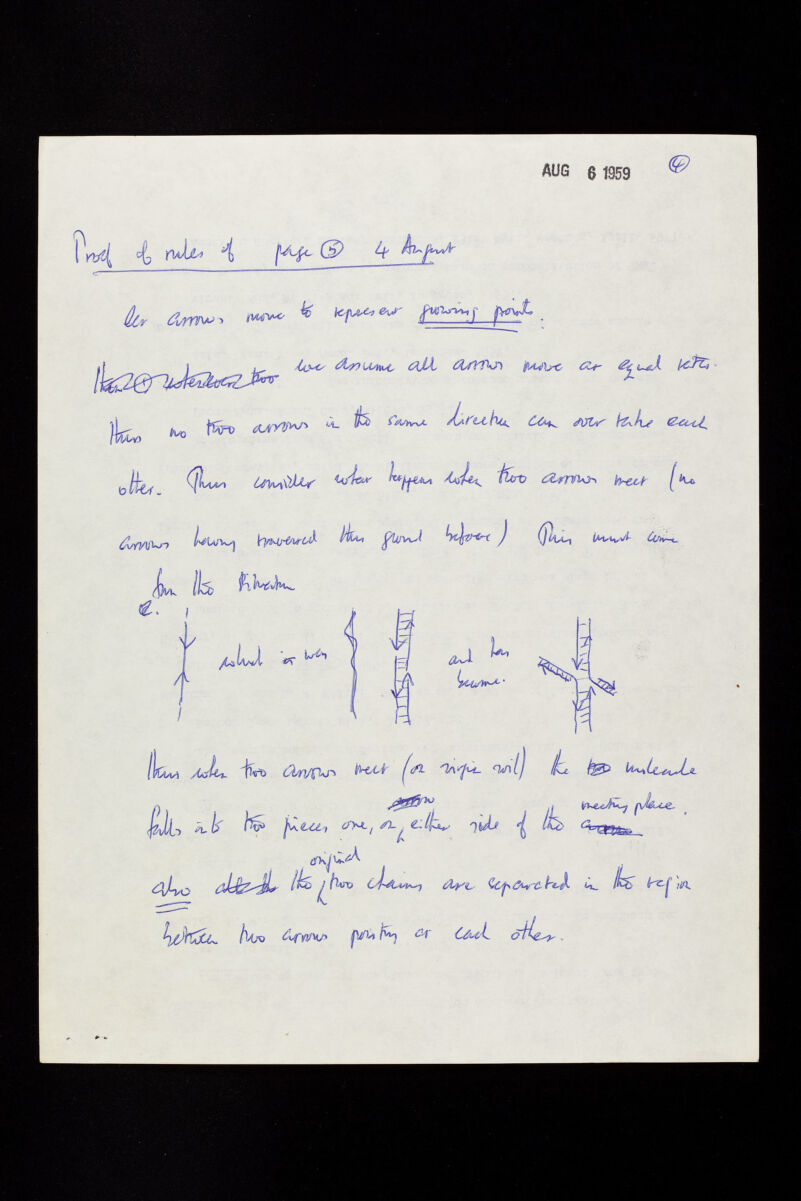 AUG 6 1959 ④
Proof of rules of page ⑤ 4 August
Let arrows move to represent growing points.
we assume all arrows move at equal rates.
Thus no two arrows in the same direction can over take each
other. Thus consider what happens when two arrows meet (no
arrows having traversed this ground before) This must come
from the situation
which is was
and has
become.
Thus when two arrows meet (on virgin soil) the molecule
falls into two pieces one, on either side of the meeting place.
also the original two chains are separated in the region
between two arrows pointing at each other.